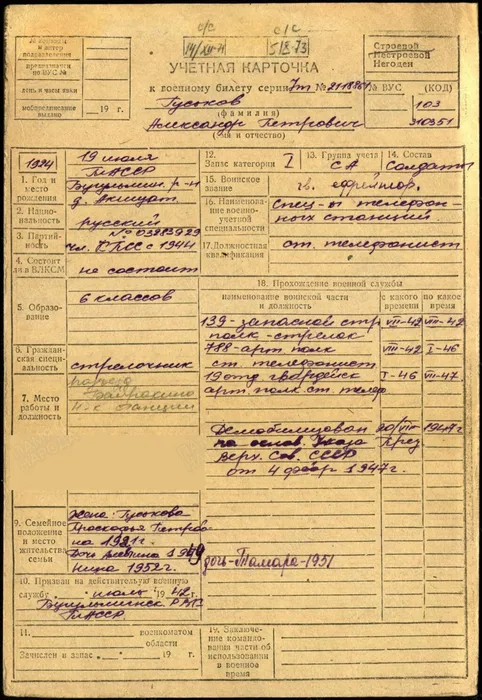 с/с
с/с
14/XII-71
5/IX-73
УЧЕТНАЯ КАРТОЧКА
Строевой
Нестроевой
Негоден
к военному билету серии № 2118851
Гуськов
(фамилия)
Александр Петрович
(имя и отчество)
№ ВУС
(КОД)
103
310351
19 г.
1924
19 июля
ТАССР
Бугульмин. р-н
1. Год и место рождения
2. Национальность
русский
3. Партийность
№ 03283929
чл. КПСС с 1944
4. Состоит ли в ВЛКСМ
не состоит
5. Образование
6 классов
6. Гражданская специальность
стрелочник
7. Место работы и должность
разъезд
станции
12. Запас категории
I
13. Группа учета
СА
14. Состав
солдаты
15. Воинское звание
ефрейтор
16. Наименование военно-учетной специальности
Спец-т телефонных станций
17. Должностная квалификация
ст. телефонист
18. Прохождение военной службы
наименование воинской части и должность
с какого времени
по какое время
139-запасной стр. VII-42 VIII-42
полк-стрелок
788-арт полк VIII-42 I-46
ст. телефонист
19 отд гвардейск I-46 VII-47
арт. полк ст. телеф
Демобилизован 20/VII 1947г
на основ. Указа През.
Верх. Сов. СССР
от 4 февр 1947г.
9. Семейное положение и место жительства семьи
Жена: Гуськова
Петровна 1921г.
Нина 1952г.
дочь-Тамара-1951
10. Призван на действительную военную
службу июль 1942 г.
Бугульминск РВК
ТАССР
11.
военкоматом
области
Зачислен в запас 19 г.
19. Заключение командования части об использовании в военное время